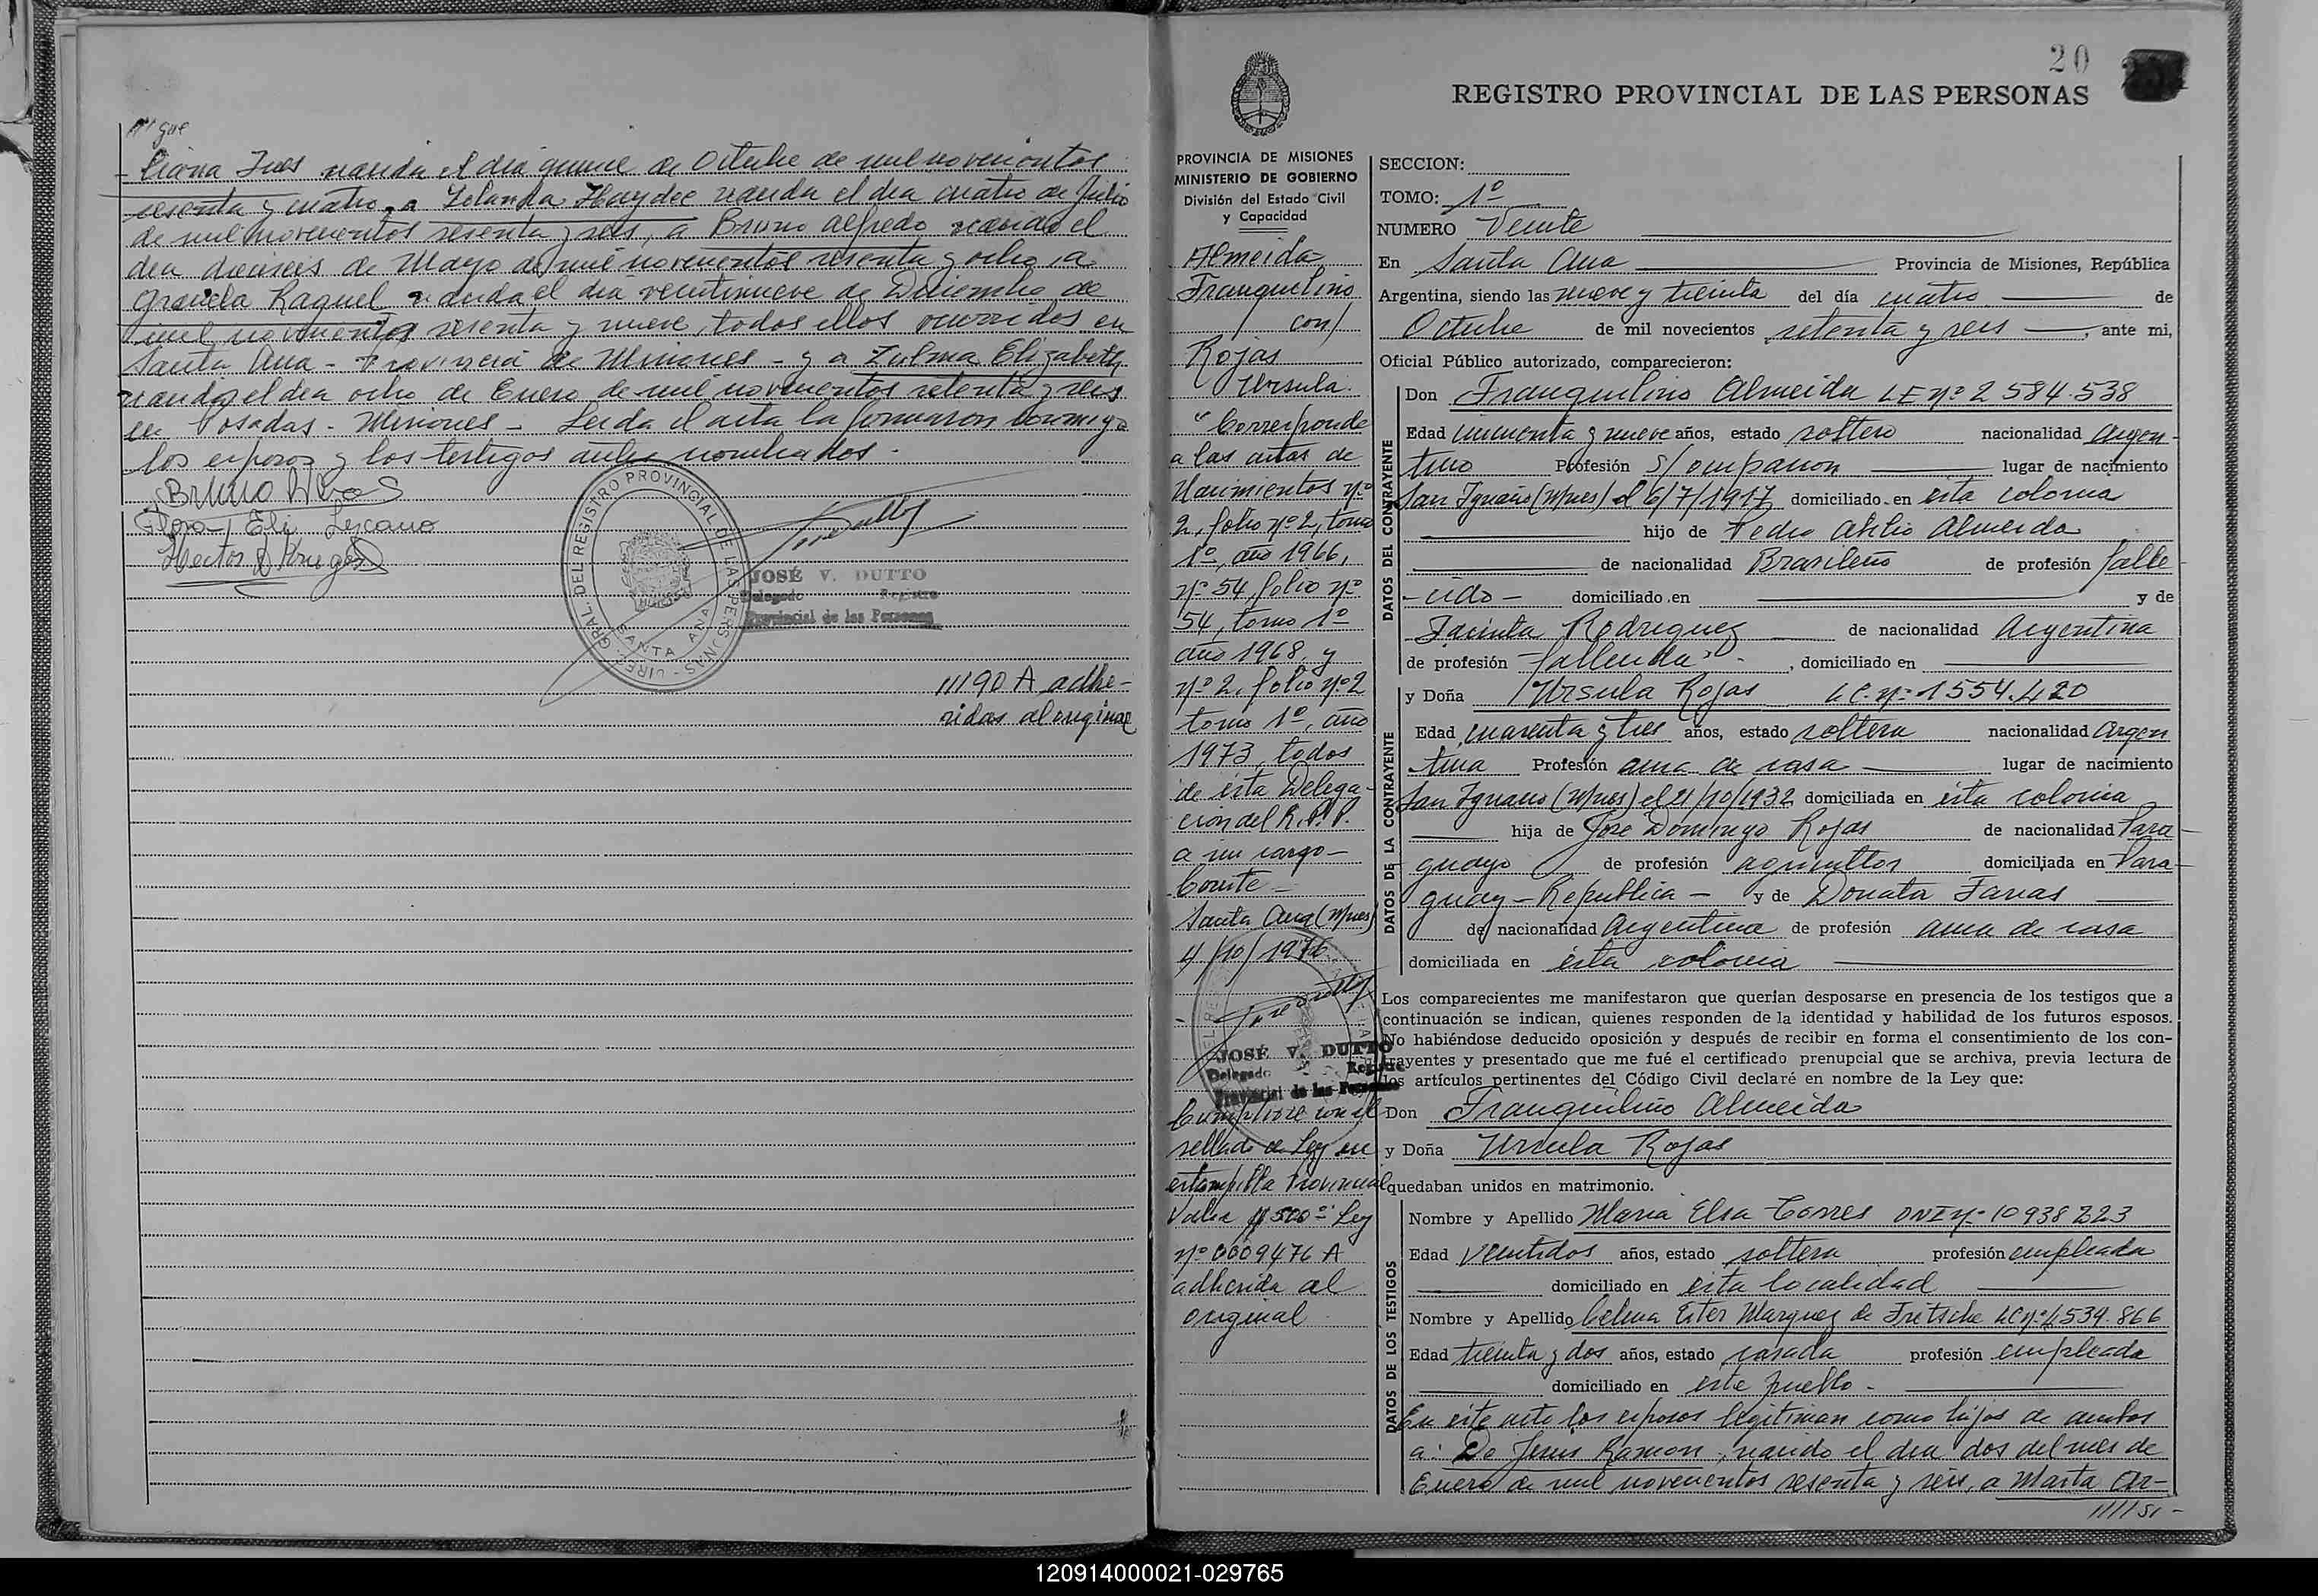 liana Ines nacida el dia quince de Octubre de mil novecientos
sesenta y cuatro, a Yolanda Haydee nacida el dia cuatro de Julio
de mil novecientos sesenta y seis, a Bruno Alfredo nacido el
dia dieciseis de Mayo de mil novecientos sesenta y ocho, a
Graciela Raquel nacida el dia veintinueve de Diciembre de
mil novecientos sesenta y nueve, todos ellos ocurridos en
Santa Ana - Provincia de Misiones - y a Zulma Elizabeth
nacida el dia ocho de Enero de mil novecientos setenta y seis
en Posadas - Misiones - Leida el acta la firmaron conmigo
los esposos y los testigos antes nombrados.
Bruno
Flora Eli Lescano
Hector
DIREC. GRAL. DEL REGISTRO PROVINCIAL DE LAS PERSONAS
SANTA ANA
JOSÉ V. DUTTO
Delegado Registro
Provincial de las Personas
90 A adhe-
ridas al original
20
REGISTRO PROVINCIAL DE LAS PERSONAS
PROVINCIA DE MISIONES
MINISTERIO DE GOBIERNO
División del Estado Civil
y Capacidad
Almeida
Franquelino
/con/
Rojas
Ursula.
"Corresponde
a las actas de
Nacimientos nº
2, folio nº 2, tomo
1º, año 1966,
nº 54, folio nº
54, tomo 1º
año 1968, y
nº 2, folio nº 2
tomo 1º, año
1973, todos
de ésta Delega-
cion del R.P.P.
a mi cargo-
Conste-
Santa Ana (Mnes)
4/10/1976
JOSÉ V. DUTTO
Delegado Registro
Provincial de las Personas
Cumplióse con el
sellado de Ley en
estampilla Provincial
Valor $ 500 Ley
nº 0009476 A
adherida al
original
SECCION:
TOMO: 1º
NUMERO Veinte
En Santa Ana Provincia de Misiones, República
Argentina, siendo las nueve y treinta del día cuatro de
Octubre de mil novecientos setenta y seis, ante mi,
Oficial Público autorizado, comparecieron:
DATOS DEL CONTRAYENTE
Don Franquilino Almeida LE nº 2 584.538
Edad cincuenta y nueve años, estado soltero nacionalidad argen-
tino Profesión s/ocupacion lugar de nacimiento
San Ignacio (Mnes) el 6/7/1917 domiciliado en esta colonia
hijo de Pedro Almeida
de nacionalidad Brasileño de profesión falle-
cido - domiciliado en y de
Jacinta Rodriguez de nacionalidad Argentina
de profesión fallecida -, domiciliado en
DATOS DE LA CONTRAYENTE
y Doña Ursula Rojas LC. nº 1554.420
Edad cuarenta y tres años, estado soltera nacionalidad Argen
tina Profesión ama de casa lugar de nacimiento
San Ignacio (Mnes) el 21/10/1932 domiciliada en esta colonia
hija de José Domingo Rojas de nacionalidad Para-
guayo de profesión agricultor domiciliada en Para-
guay - Republica - y de Donata Farias
de nacionalidad Argentina de profesión ama de casa
domiciliada en ésta colonia
Los comparecientes me manifestaron que querían desposarse en presencia de los testigos que a
continuación se indican, quienes responden de la identidad y habilidad de los futuros esposos.
No habiéndose deducido oposición y después de recibir en forma el consentimiento de los con-
trayentes y presentado que me fué el certificado prenupcial que se archiva, previa lectura de
los artículos pertinentes del Código Civil declaré en nombre de la Ley que:
Don Franquilino Almeida
y Doña Ursula Rojas
quedaban unidos en matrimonio.
DATOS DE LOS TESTIGOS
Nombre y Apellido Maria Elsa Torres DNI nº 10 938 223
Edad veintidos años, estado soltera profesión empleada
domiciliado en esta localidad
Nombre y Apellido Celma Ester Marquez de Fritsche LC nº 4534.866
Edad treinta y dos años, estado casada profesión empleada
domiciliado en este pueblo -
En este acto los esposos legitiman como hijos de ambos
a: De Jesus Ramon, nacido el dia dos del mes de
Enero de mil novecientos sesenta y seis, a Marta Or-
120914000021-029765